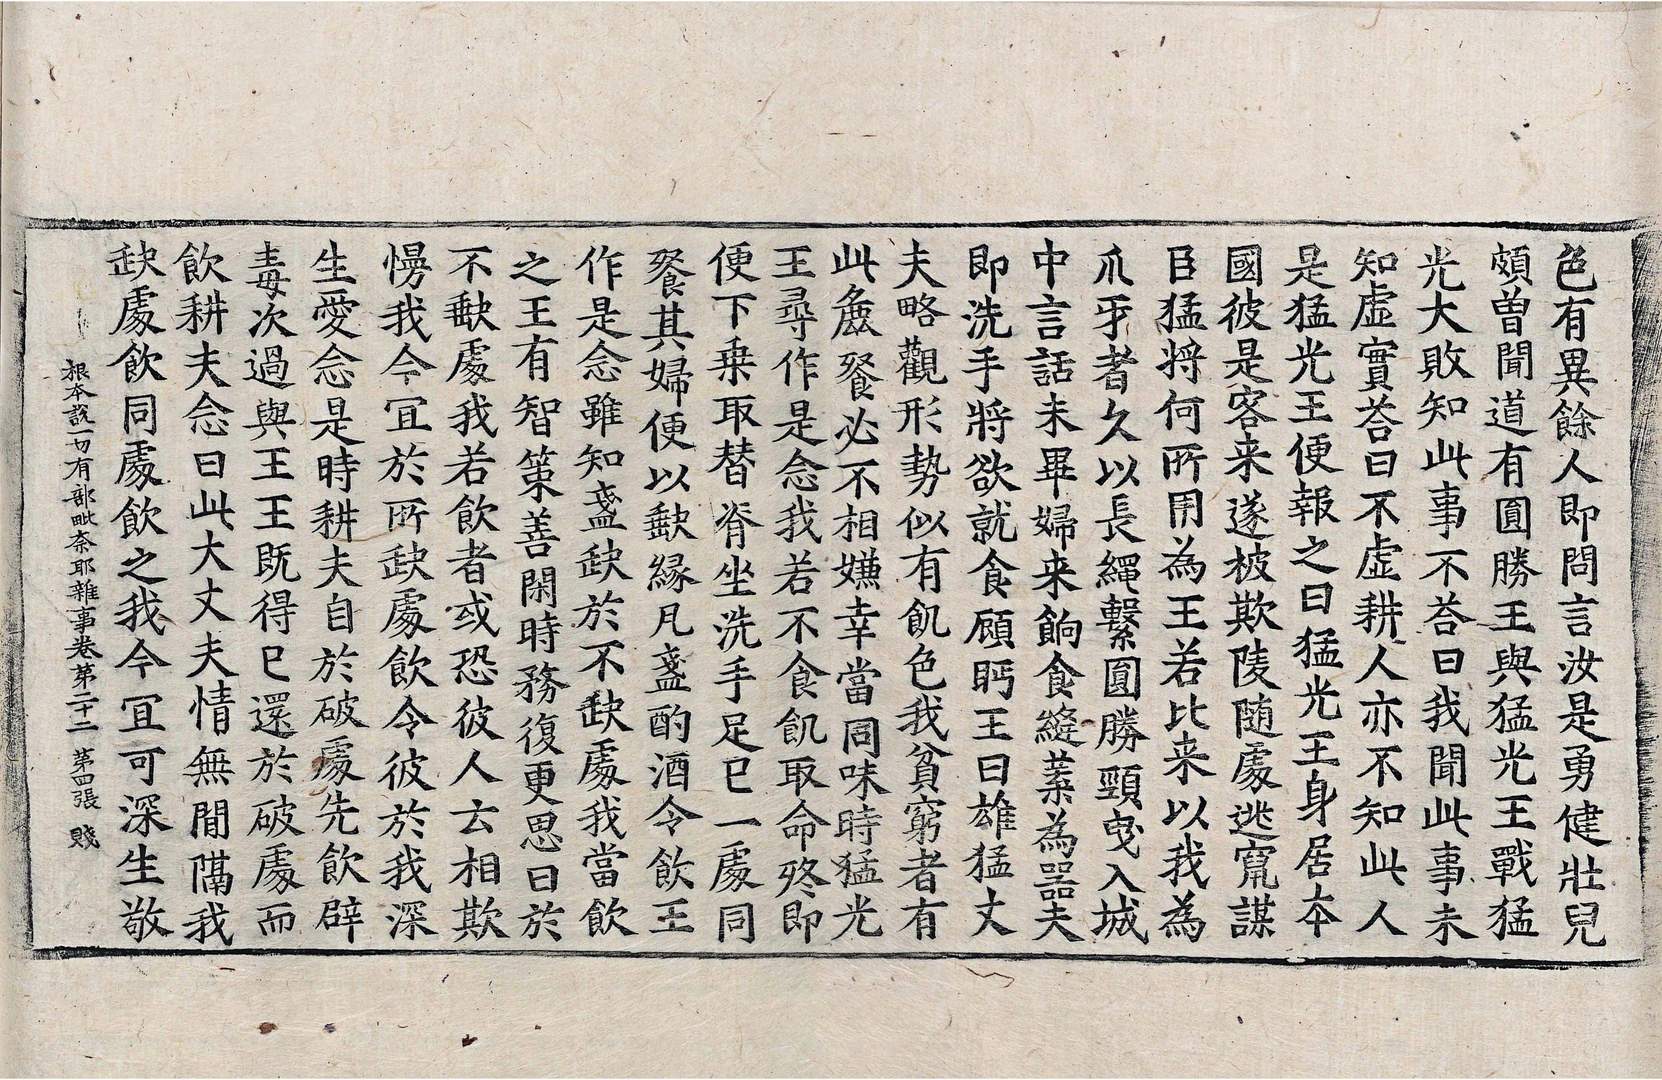 色有異餘人即問言汝是勇健壯兒
頗曽聞道有圓勝王與猛光王戰猛
光大敗知此事不荅曰我聞此事未
知虛實荅曰不虛耕人亦不知此人
是猛光王便報之曰猛光王身居本
國彼是客来遂被欺陵随處逃竄謀
臣猛将何所用為王若比来以我為
爪牙者久以長繩繫圓勝頸曳入城
中言話未畢婦来餉食縫葉為器夫
即洗手將欲就食顧眄王曰雄猛丈
夫略觀形勢似有飢色我貧窮者有
此麁飡必不相嫌幸當同味時猛光
王尋作是念我若不食飢取命終即
便下乗取替脊坐洗手足已一處同
飡其婦便以𡙇緣凡盞酌酒令飲王
作是念雖知盞缺於不缺處我當飲
之王有智策善閑時務復更思曰於
不缺處我若飲者或恐彼人云相欺
慢我今宜於所缺處飲令彼於我深
生愛念是時耕夫自於破處先飲辟
毒次過與王王既得已還於破處而
飲耕夫念曰此大丈夫情無閒隔我
缺處飲同處飲之我今宜可深生敬
根本說一切有部毗奈耶雜事卷第二十二　第四張　賤